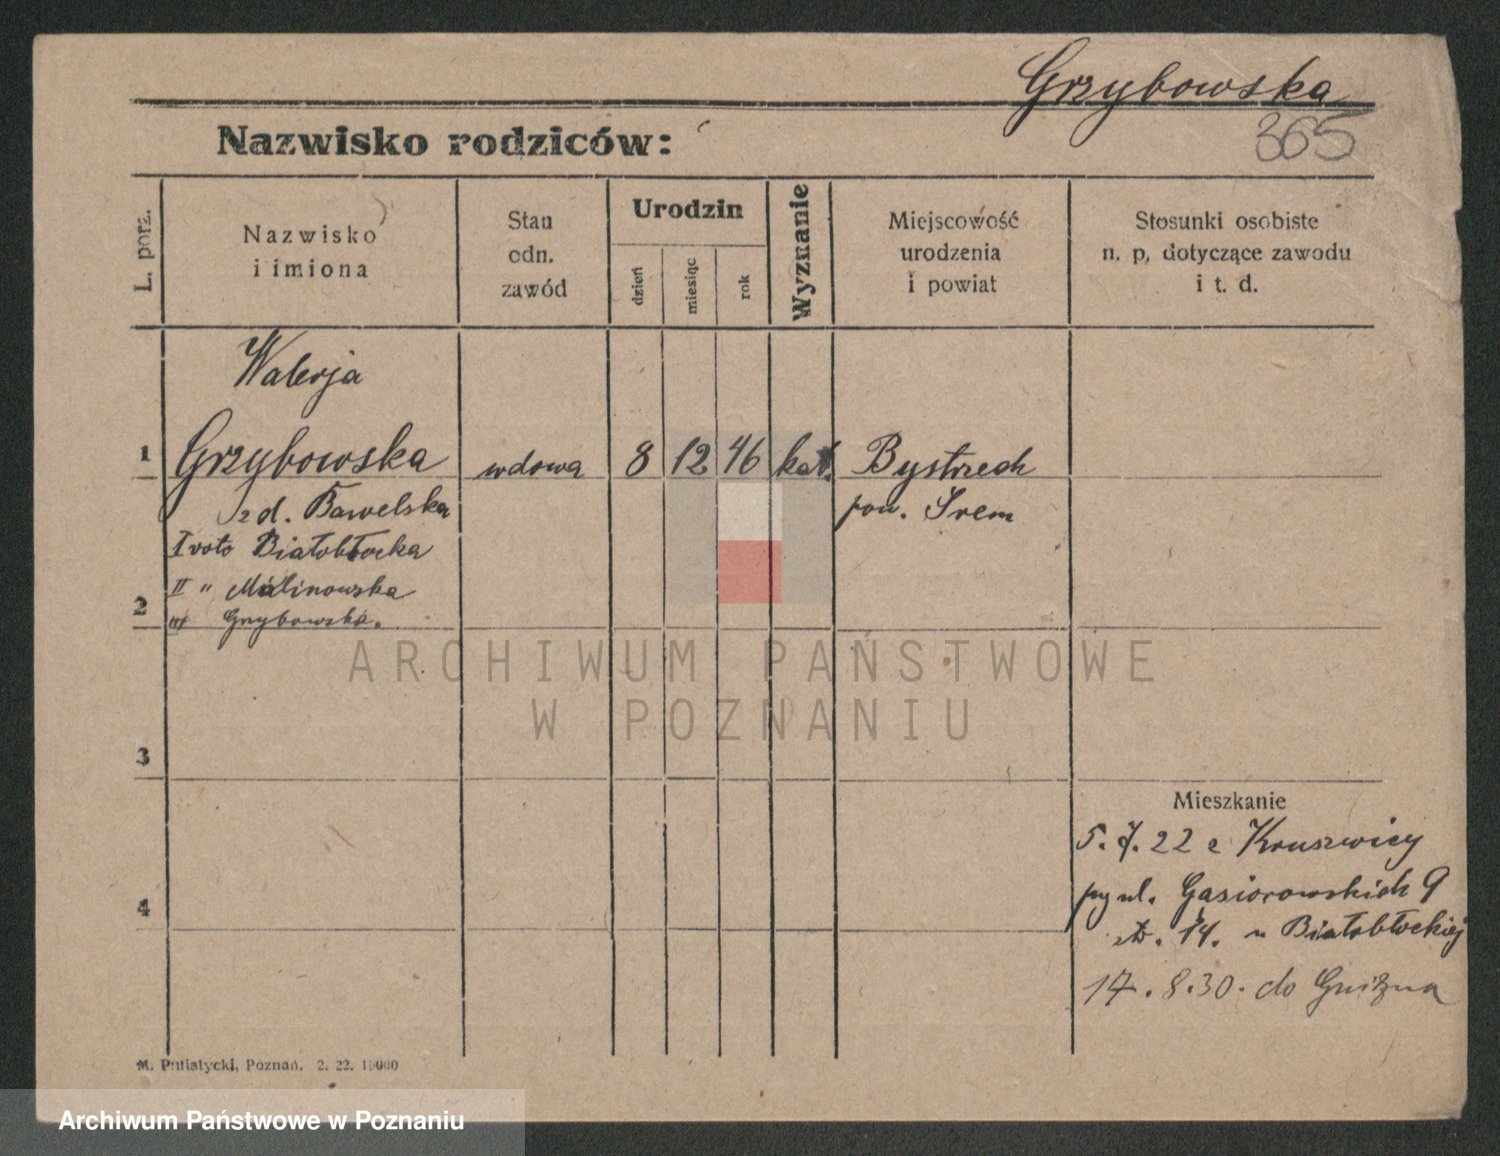 Grzybowska
Nazwisko rodziców:
365
L. porz.
Nazwisko
i imiona
Stan
odn.
zawód
Urodzin
dzień
miesiąc
rok
Wyznanie
Miejscowość
urodzenia
i powiat
Stosunki osobiste
n. p. dotyczące zawodu
i t. d.
Walerja
1 Grzybowska wdowa 8 12 46 kat. Bystrzek
z d. Bawelska pow. Śrem
I voto Białobłocka
II " Malinowska
2 III Grzybowska.
ARCHIWUM PAŃSTWOWE
W POZNANIU
3
Mieszkanie
5. 7. 22 z Kruszwicy
przy ul. Gąsiorowskich 9
4 14. u Białobłockiej
17. 8. 30. do Gniezna
M. Putiatycki, Poznań. 2. 22. 15000
Archiwum Państwowe w Poznaniu